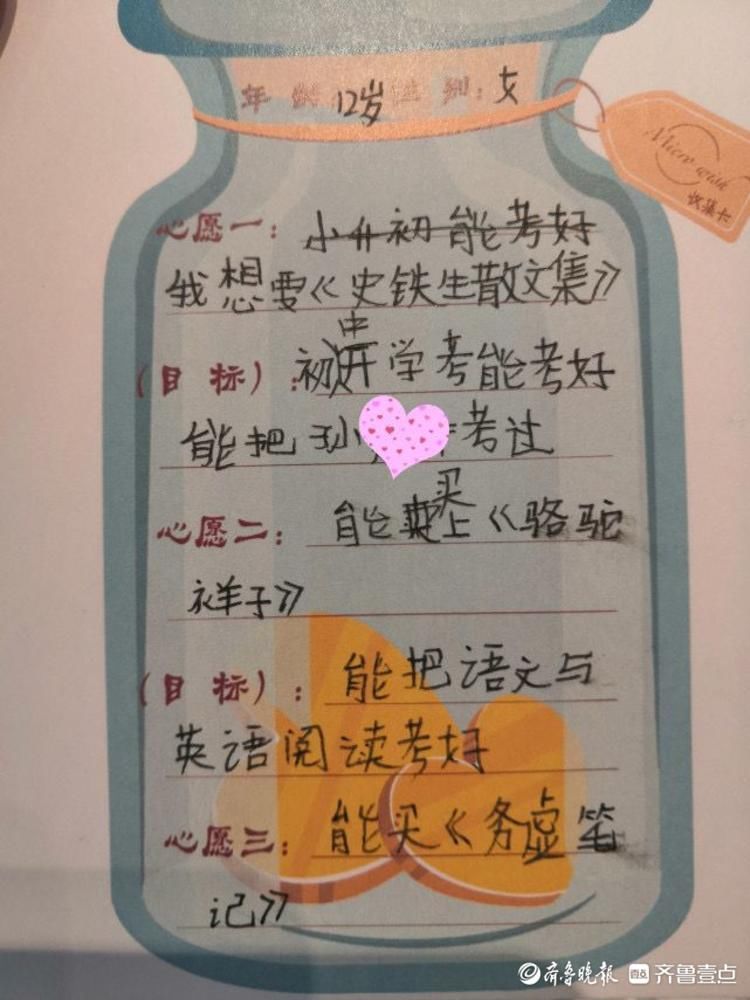 年龄:12岁 性别:女
Micro wish
收集卡
心愿一:小升初能考好
我想要《史铁生散文集》
(目标):初中开学考能考好
能把 考过
心愿二:能买上《骆驼
祥子》
(目标):能把语文与
英语阅读考好
心愿三:能买《务虚笔
记》
齐鲁晚报 壹点 齐鲁壹点